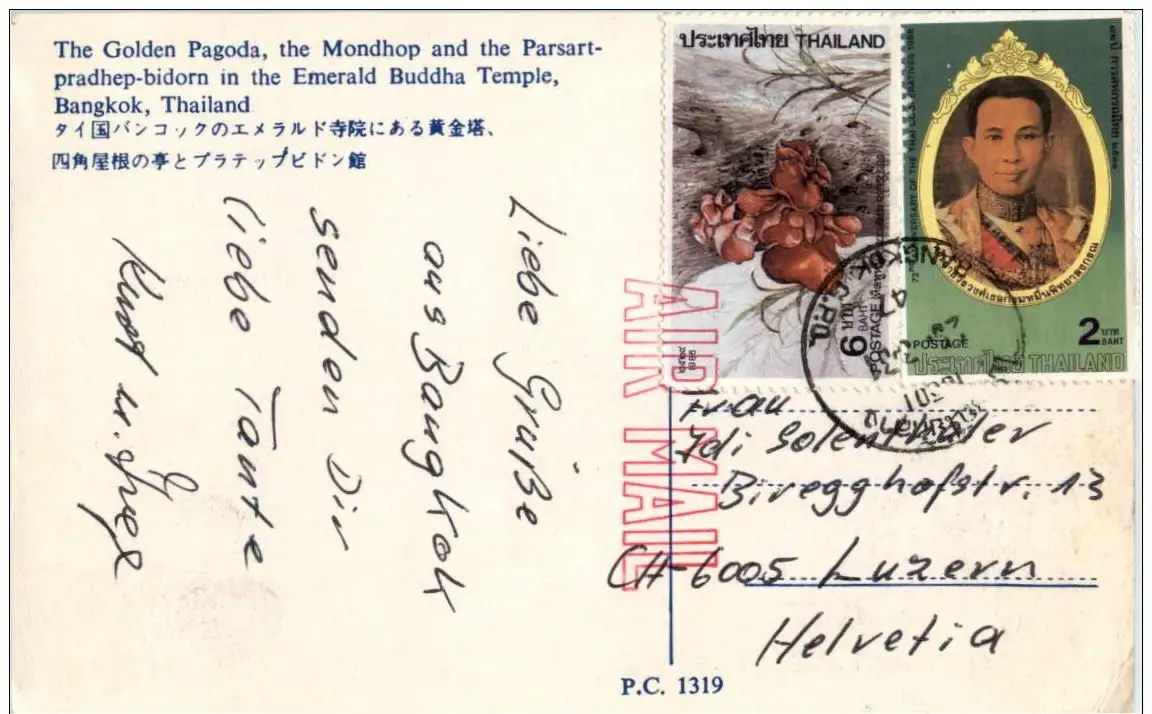 The Golden Pagoda, the Mondhop and the Parsart-
pradhep-bidorn in the Emerald Buddha Temple,
Bangkok, Thailand
タイ国バンコックのエメラルド寺院にある黄金塔、
四角屋根の亭とプラテップビドン館
ประเทศไทย THAILAND
9
BAHT
POSTAGE
1986
72nd ANNIVERSARY OF THE THAI COOPERATIVES 1988
2
บาท
BAHT
POSTAGE
ประเทศไทย THAILAND
BANGKOK
G.P.O.
AIR MAIL
Liebe Grüße
aus Bangkok
senden Dir
liebe Tante
Frau
Biregghofstr. 13
CH-6005 Luzern
Helvetia
P.C. 1319